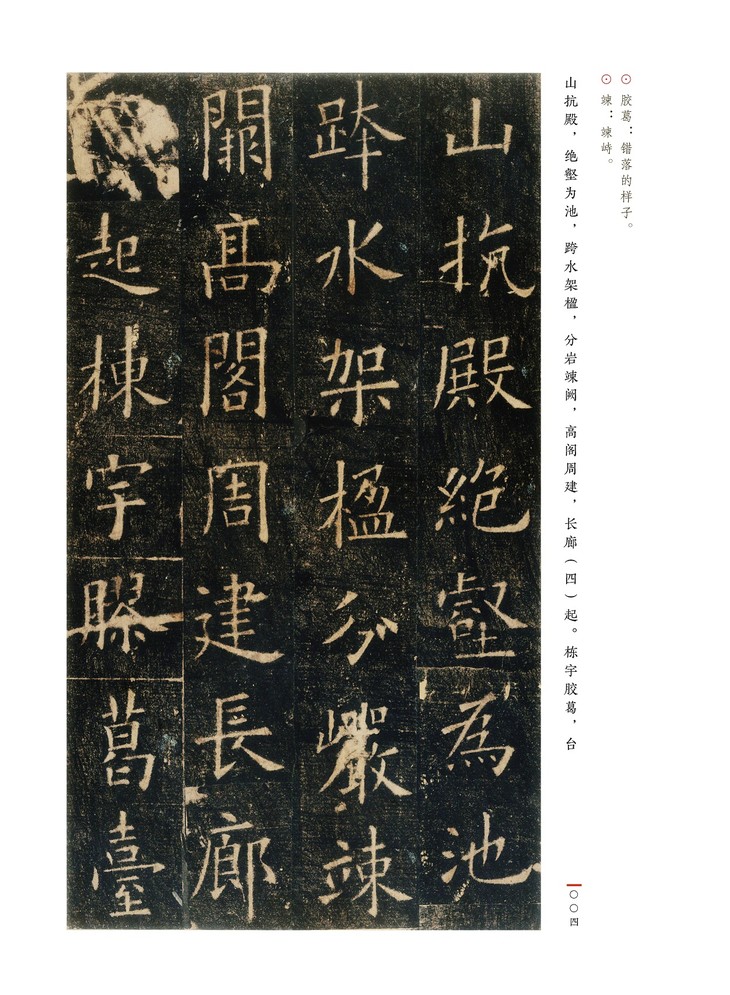 ⊙ 胶葛：错落的样子。
⊙ 竦：竦峙。
山抗殿，绝壑为池，跨水架楹，分岩竦阙，高阁周建，长廊（四）起。栋宇胶葛，台
〇〇四
山抗殿絶壑為池
跨水架楹分巖竦
闕髙閣周建長廊
起棟宇膠葛臺